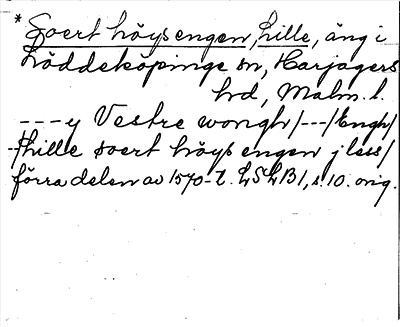 * Soert höys engen, Lille, äng i
Löddeköpinge sn, Harjagers
hrd, Malm. l.
---y Vestre wongh/---/Engh/
-/Lille soert höys engen j less/
förra delen av 1570-t. LSLB1, s. 10. orig.